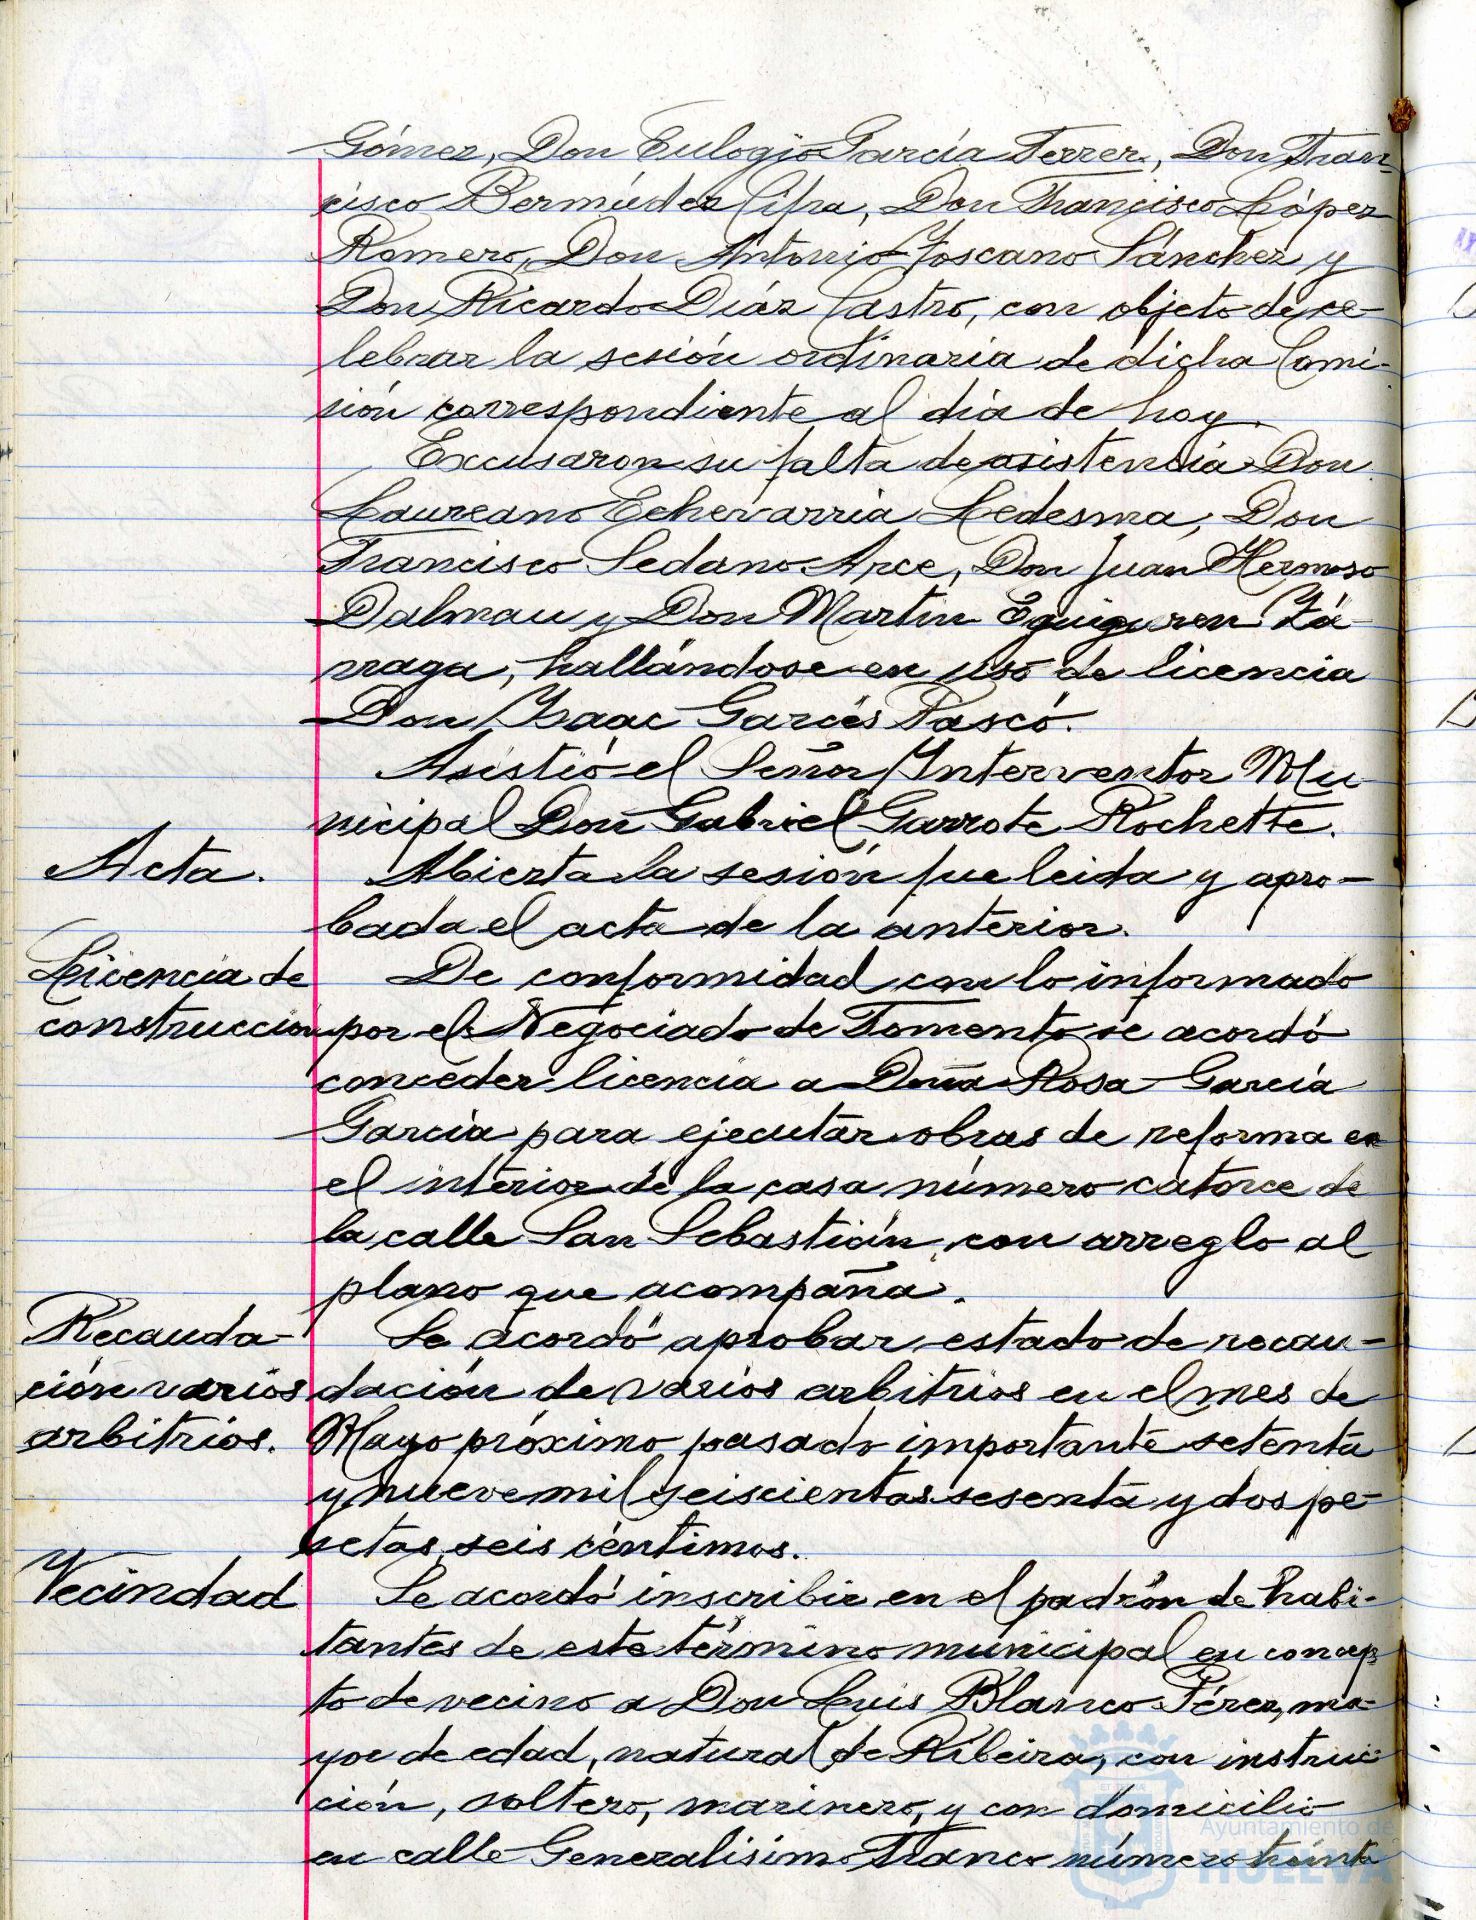 Gómez, Don Eulogio García Ferrer, Don Fran-
cisco Bermúdez Cifra, Don Francisco López
Romero, Don Antonio Toscano Sánchez y
Don Ricardo Díaz Castro, con objeto de ce-
lebrar la sesión ordinaria de dicha Comi-
sión correspondiente al día de hoy.
Excusaron su falta de asistencia Don
Laureano Echevarria Ledesma, Don
Francisco Sedano Arce, Don Juan Hermoso
Dalmau y Don Martin Eguiguren Zá-
rraga, hallándose en uso de licencia
Don Isaac Garcés Pascó.
Asistió el Señor Interventor Mu
nicipal Don Gabriel Garrote Rochette.
Acta.
Abierta la sesión fue leida y apro-
bada el acta de la anterior.
Licencia de
construccion
De conformidad con lo informado
por el Negociado de Fomento se acordó
conceder licencia a Doña Rosa García
García para ejecutar obras de reforma en
el interior de la casa número catorce de
la calle San Sebastián, con arreglo al
plano que acompaña.
Recauda-
ción varios
arbitrios.
Se acordó aprobar estado de recau-
dación de varios arbitrios en el mes de
Mayo próximo pasado importante setenta
y nueve mil seiscientas sesenta y dos pe-
setas, seis céntimos.
Vecindad
Se acordó inscribir en el padrón de habi-
tantes de este término municipal en concep
to de vecino a Don Luis Blanco Pérez, ma-
yor de edad, natural de Ribeira, con instruc
ción, soltero, marinero, y con domicilio
en calle Generalisimo Franco número treinta
Ayuntamiento de
HUELVA